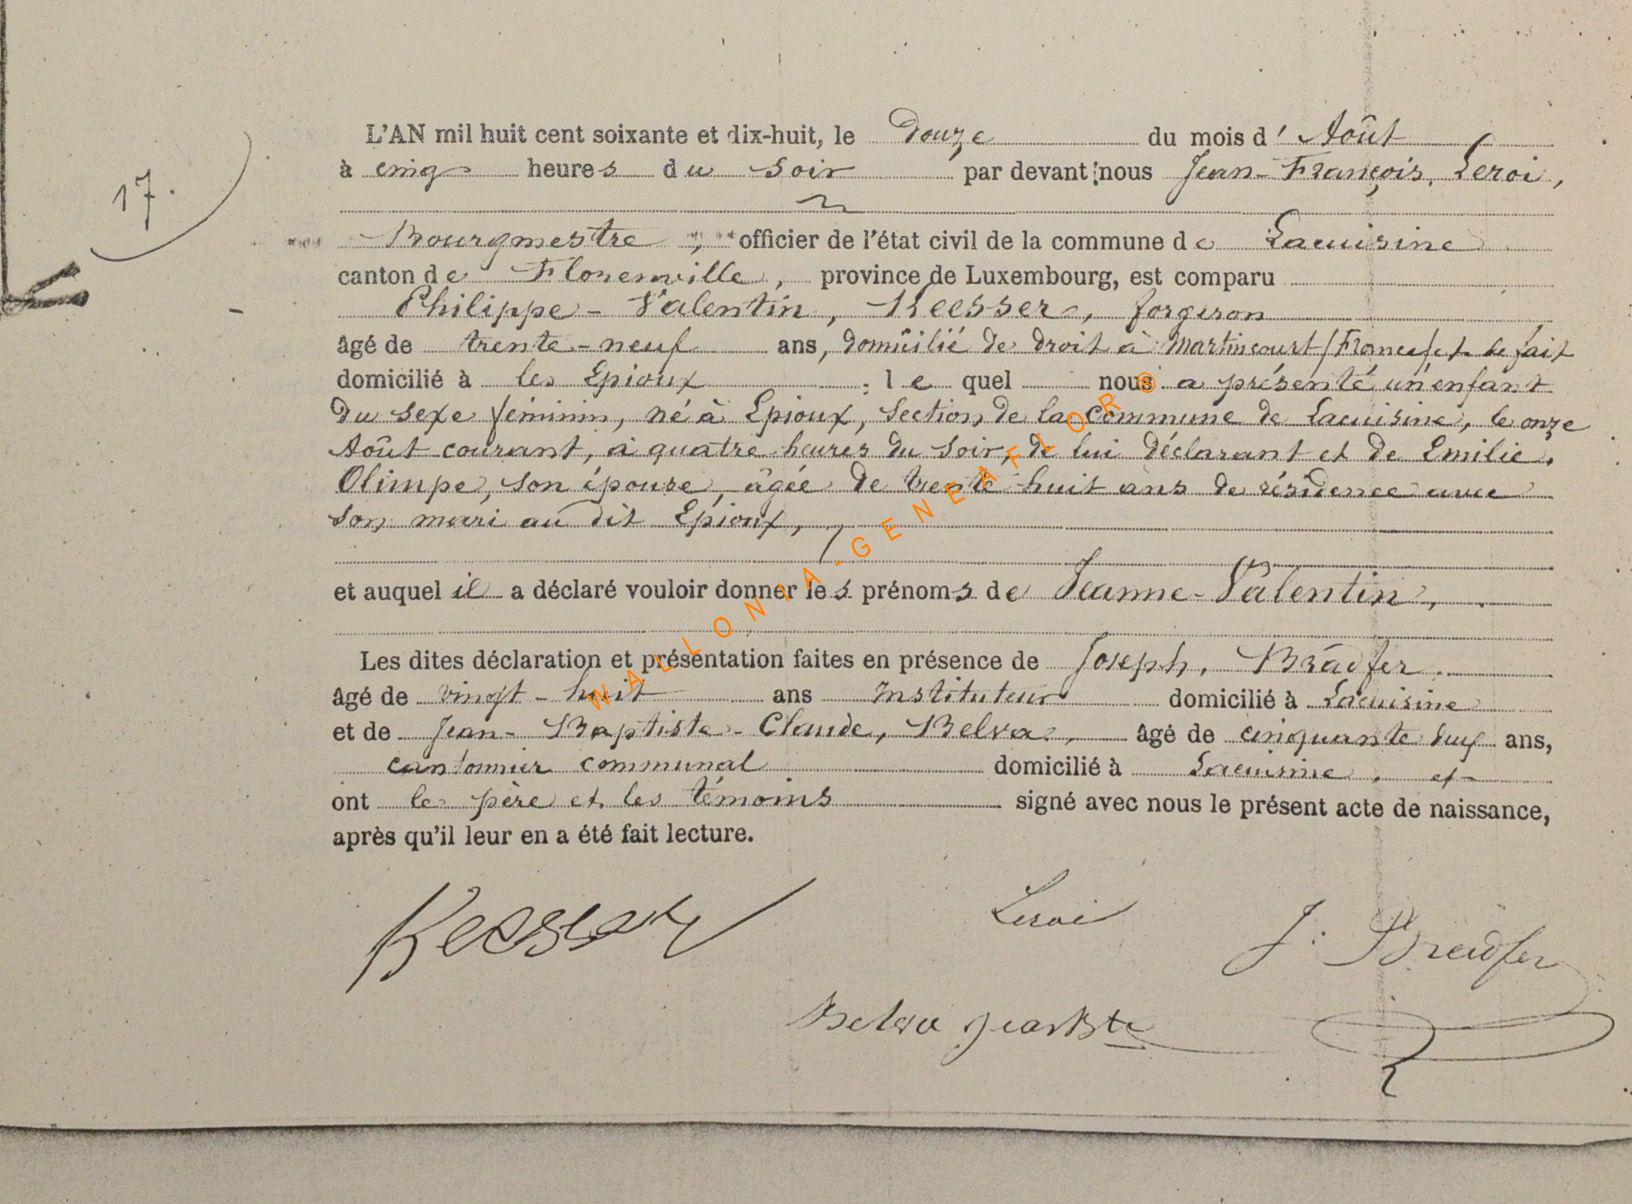 17.
L'AN mil huit cent soixante et dix-huit, le Douze du mois d' Août
à cinq heures du soir par devant nous Jean-François, Leroi,
Bourgmestre, officier de l'état civil de la commune de Lacuisine
canton de Florenville, province de Luxembourg, est comparu
Philippe-Valentin, Keesser, forgeron
âgé de trente-neuf ans, domicilié de droit à Martincourt (France) et de fait
domicilié à les Epioux ; lequel nous a présenté un enfant
du sexe féminin, né à Epioux, Section de la commune de Lacuisine, le onze
Août courant, à quatre heures du soir, de lui déclarant et de Emilie,
Olimpe, son épouse, âgée de trente huit ans de résidence avec
son mari au dit Epioux,
et auquel il a déclaré vouloir donner les prénoms de Jeanne-Valentin,
Les dites déclaration et présentation faites en présence de Joseph, Bradfer
âgé de vingt-huit ans Instituteur domicilié à Lacuisine
et de Jean-Baptiste-Claude, Belva, âgé de cinquante deux ans,
cantonnier communal domicilié à Lacuisine, et
ont le père et les témoins signé avec nous le présent acte de naissance,
après qu'il leur en a été fait lecture.
Keesser Leroi J. Bradfer
Belva Jean Bte
WALLONIA-GENEAFLOR©